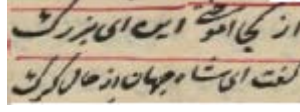 از کجا آموختی این ای بزرگ
گفت ای شاه جهان از حال گرگ